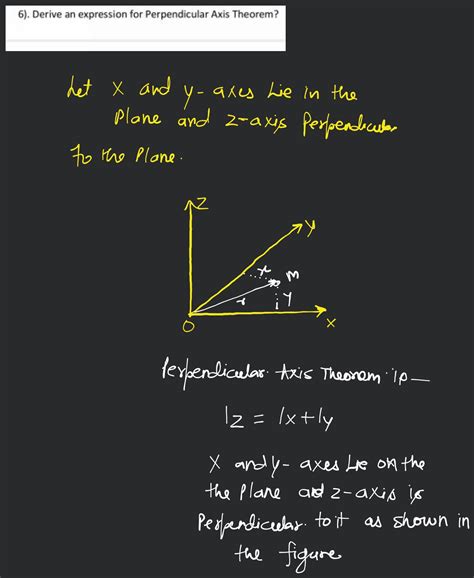 6). Derive an expression for Perpendicular Axis Theorem?
Let x and y-axes Lie in the
Plane and z-axis Perpendicular
To the Plane.
Z
Y
x
M
r
y
O
X
Perpendicular Axis Theorem is —
Iz = Ix+Iy
X and y- axes Lie on the
the Plane and z-axis is
Perpendicular to it as shown in
the figure